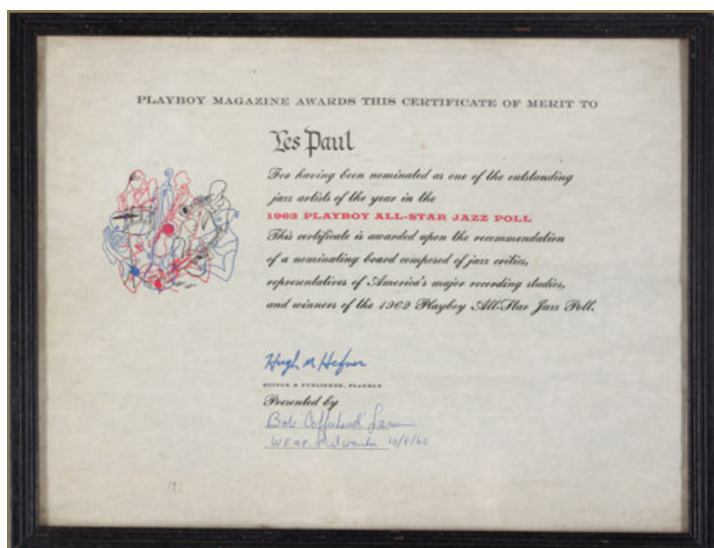 PLAYBOY MAGAZINE AWARDS THIS CERTIFICATE OF MERIT TO
Les Paul
For having been nominated as one of the outstanding
jazz artists of the year in the
1963 PLAYBOY ALL-STAR JAZZ POLL
This certificate is awarded upon the recommendation
of a nominating board composed of jazz critics,
representatives of America's major recording studios,
and winners of the 1962 Playboy All-Star Jazz Poll.
Hugh M Hefner
EDITOR & PUBLISHER, PLAYBOY
Presented by
Bob "Coffeehead" Larsen
WEMP Milwaukee 10/8/62